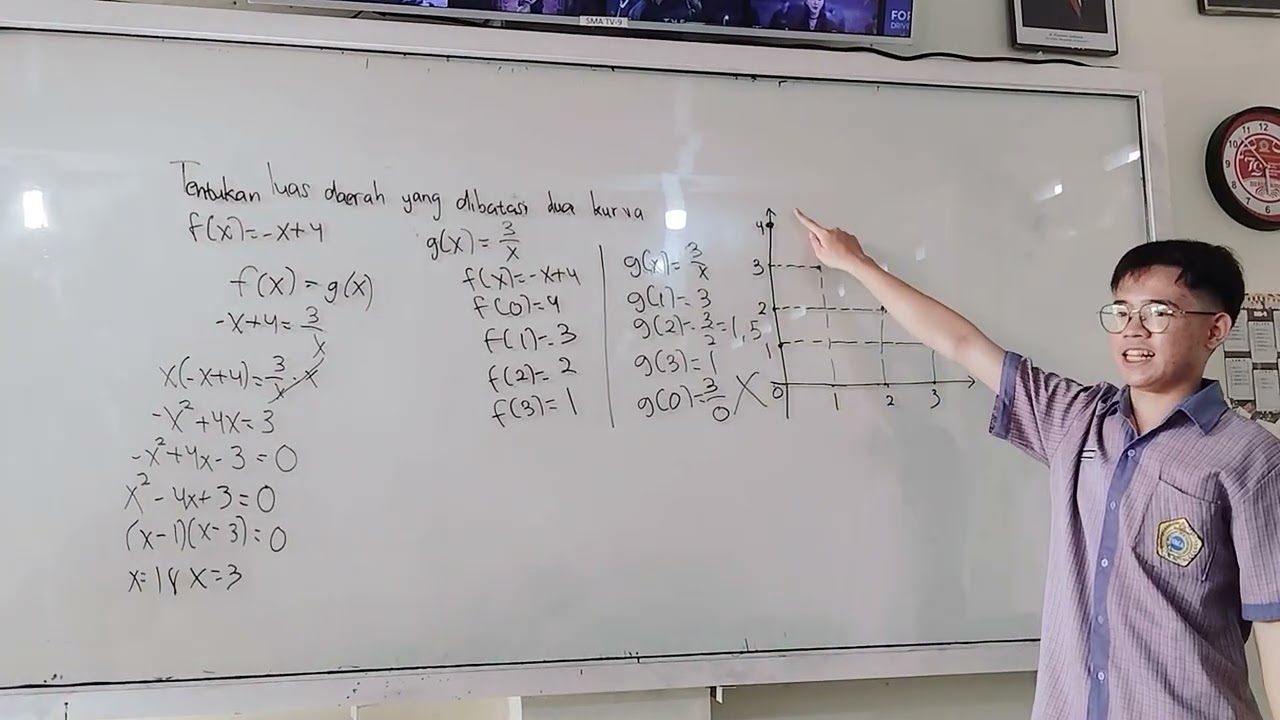 SMA TV-9
FOR
DRIVE
Tentukan luas daerah yang dibatasi dua kurva
f(x)=-x+4
g(x)=3/x
f(x)=g(x)
-x+4=3/x
x(-x+4)=3/x·x
-x²+4x=3
-x²+4x-3=0
x²-4x+3=0
(x-1)(x-3)=0
x=1 & x=3
f(x)=-x+4
f(0)=4
f(1)=3
f(2)=2
f(3)=1
g(x)=3/x
g(1)=3
g(2)=3/2=1,5
g(3)=1
g(0)=3/0 X
4
3
2
1
0 1 2 3
11 12 1
10
9
8 4
7 6 5